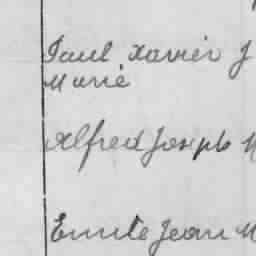 Paul Xavier J
Marie
Alfred Joseph M
Emile Jean M